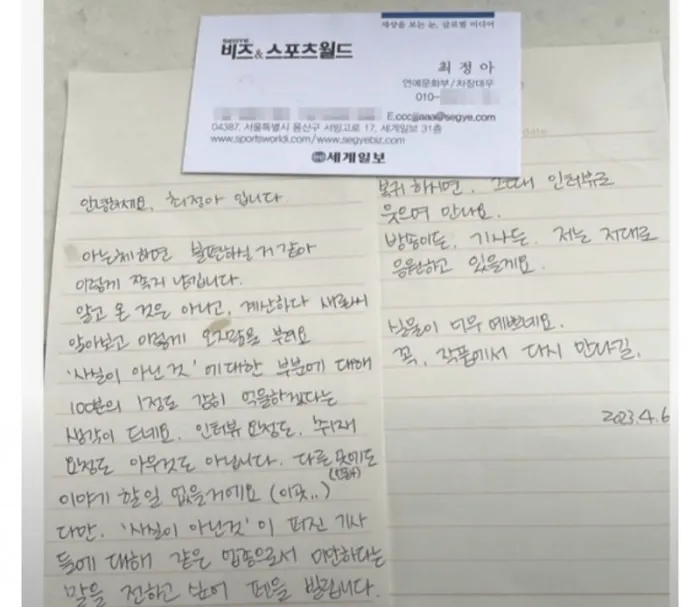 세상을 보는 눈, 글로벌 미디어
SEGYE
비즈&스포츠월드
최 정 아
연예문화부/차장대우
010-
E.cccjjaaa@segye.com
04387, 서울특별시 용산구 서빙고로 17, 세계일보 31층
www.sportsworldi.com/www.segyebiz.com
세계일보
안녕하세요, 최정아 입니다
아는체 하면 불편하실 거 같아
이렇게 쪽지 남깁니다.
알고 온 것은 아니고, 계산하다 새로써
알아보고 이렇게 오지랖을 부려요
'사실이 아닌 것'에 대한 부분에 대해
100분의 1정도 감히 억울하겠다는
생각이 드네요. 인터뷰 요청도, 취재
요청도 아무것도 아닙니다. 다른 곳에도
이야기 할 일 없을거에요 (이곳..)
다만, '사실이 아닌것'이 퍼진 기사
들에 대해 같은 업종으로서 미안하다는
말을 전하고 싶어 펜을 빌립니다.
복귀 하시면, 그때 인터뷰로
웃으며 만나요.
방송이든, 기사든, 저는 저대로
응원하고 있을게요.
실물이 너무 예쁘네요.
꼭, 작품에서 다시 만나길.
2023.4.6